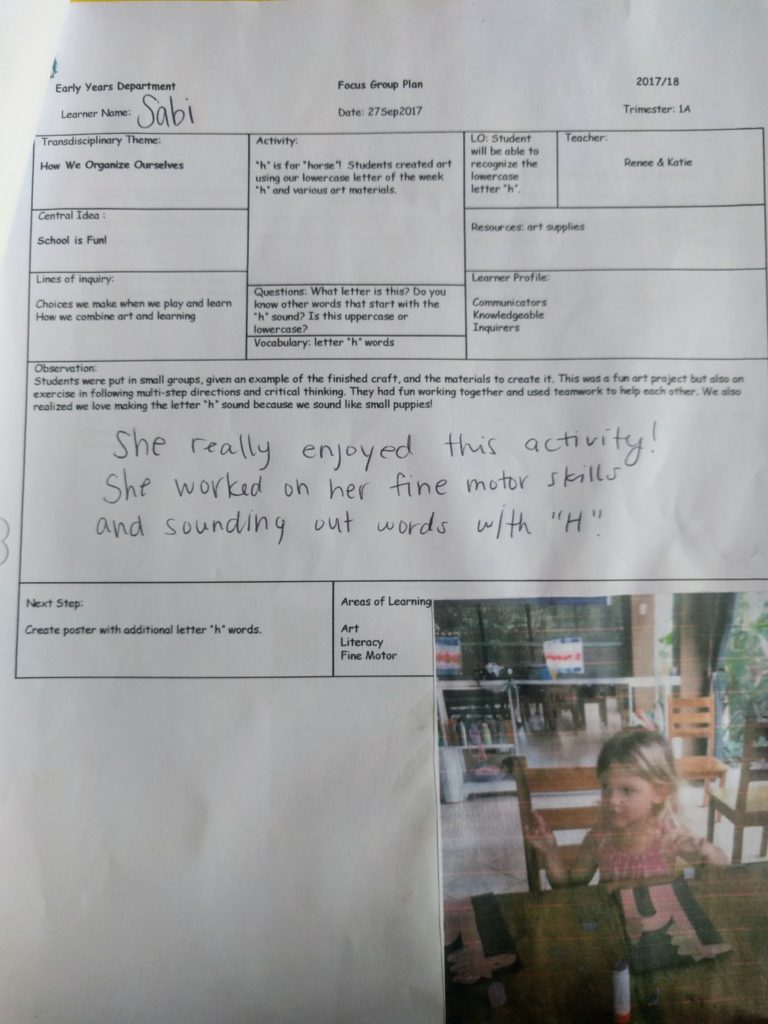 Early Years Department
Focus Group Plan
2017/18
Learner Name: Sabi
Date: 27Sep2017
Trimester: 1A
Transdisciplinary Theme:
How We Organize Ourselves
Activity:
"h" is for "horse"! Students created art
using our lowercase letter of the week
"h" and various art materials.
LO: Student
will be able to
recognize the
lowercase
letter "h".
Teacher:
Renee & Katie
Central Idea :
School is Fun!
Resources: art supplies
Lines of inquiry:
Choices we make when we play and learn
How we combine art and learning
Questions: What letter is this? Do you
know other words that start with the
"h" sound? Is this uppercase or
lowercase?
Vocabulary: letter "h" words
Learner Profile:
Communicators
Knowledgeable
Inquirers
Observation:
Students were put in small groups, given an example of the finished craft, and the materials to create it. This was a fun art project but also an
exercise in following multi-step directions and critical thinking. They had fun working together and used teamwork to help each other. We also
realized we love making the letter "h" sound because we sound like small puppies!
She really enjoyed this activity!
She worked on her fine motor skills
and sounding out words with "H".
Next Step:
Create poster with additional letter "h" words.
Areas of Learning
Art
Literacy
Fine Motor